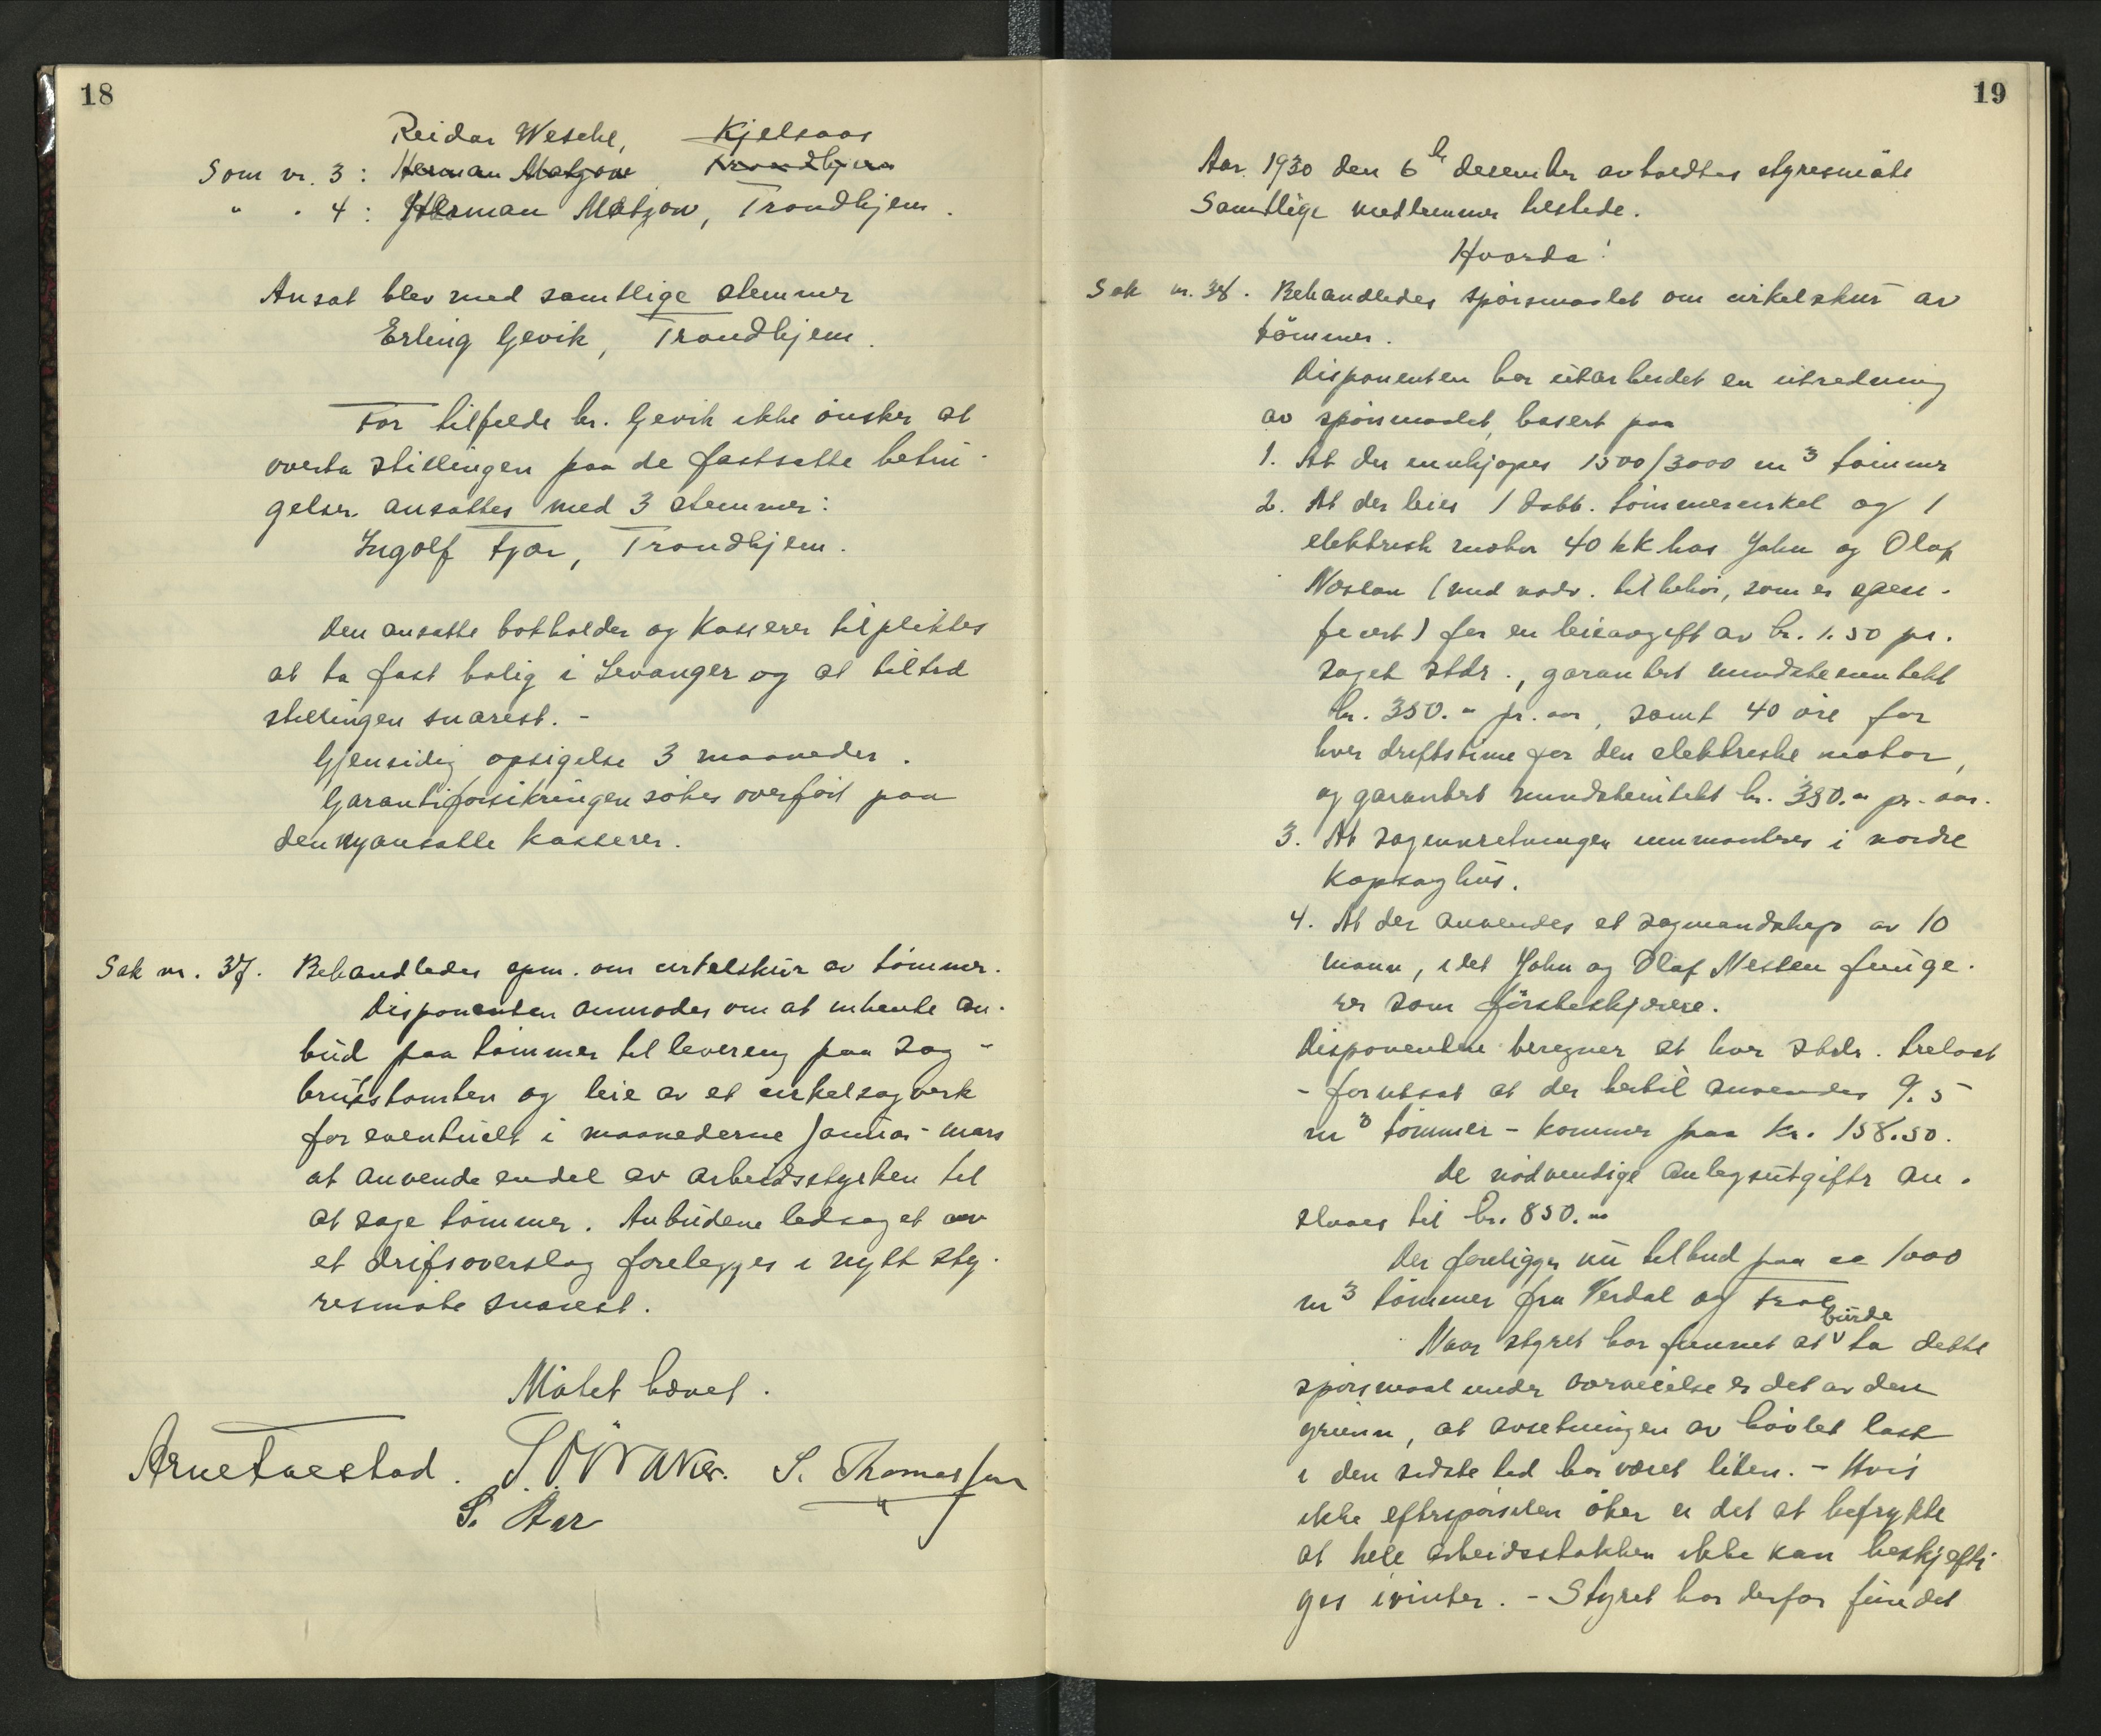 18
Reidar Weschl, Kjelsaas
Som nr. 3: Herman Matzow Trondhjem
" . 4: Herman Matzow, Trondhjem.
Ansat blev med samtlige stemmer
Erling Gevik, Trondhjem.
For tilfelde hr. Gevik ikke ønsker at
overta stillingen paa de fastsatte betin-
gelser ansattes med 3 stemmer:
Ingolf Fjær, Trondhjem.
Den ansatte bokholder og kasserer tilpliktes
at ta fast bolig i Levanger og at tiltræ
stillingen snarest. -
Gjensidig opsigelse 3 maaneder.
Garantiforsikringen søkes overført paa
den nyansatte kasserer.
Sak nr. 37. Behandledes spm. om cirkelskur av tømmer.
Disponenten anmodes om at inhente an-
bud paa tømmer til levering paa sag-
brukstomten og leie av et cirkelsagverk
for eventuelt i maanederne januar - mars
at anvende endel av arbeidsstyrken til
at sage tømmer. Anbudene ledsaget av
et drifsoverslag forelegges i nytt sty-
resmøte snarest.
Møtet hævet.
Arne Faestad. S. Thomassen
S. Aar
19
Aar 1930 den 6te desember avholdtes styresmøte
Samtlige medlemmer tilstede.
Hvorda:
Sak nr. 38. Behandledes spørsmaalet om cirkelskur av
tømmer.
Disponenten har utarbeidet en utredning
av spørsmaalet, basert paa
1. At der innkjøpes 1500/3000 m3 tømmer
2. At der leies 1 dobb. tømmercirkel og 1
elektrisk motor 40 hk hos John og Olaf
Neslan (med nødv. tilbehør, som er spesi-
fisert) for en leieavgift av kr. 1.50 pr.
saget stdr., garantert mindsteinntekt
kr. 350.- pr. aar, samt 40 øre for
hver driftstime for den elektriske motor,
og garantert mindsteintekt kr. 350.- pr. aar.
3. At saginnretningen innmonteres i nordre
kapsaghus.
4. At der anvendes et sagmandskap av 10
mann, idet John og Olaf Neslen funge-
rer som førsteskjærere.
Disponenten beregner at hver stdr. trelast
- forutsat at der hertil anvendes 9.5
m3 tømmer - kommer paa kr. 158.50.
De nødvendige anlegsutgifter an-
slaaes til kr. 850.-
Der foreligger nu tilbud paa ca 1000
m3 tømmer fra Verdal og Frol
Naar styret har funnet at burde ta dette
spørsmaal under overveielse er det av den
grunn, at avsetningen av høvlet last
i den sidste tid har været liten. - Hvis
ikke efterspørselen øker er det at befrykte
at hele arbeidsstokken ikke kan beskjefti-
ges i vinter. - Styret har derfor fundet